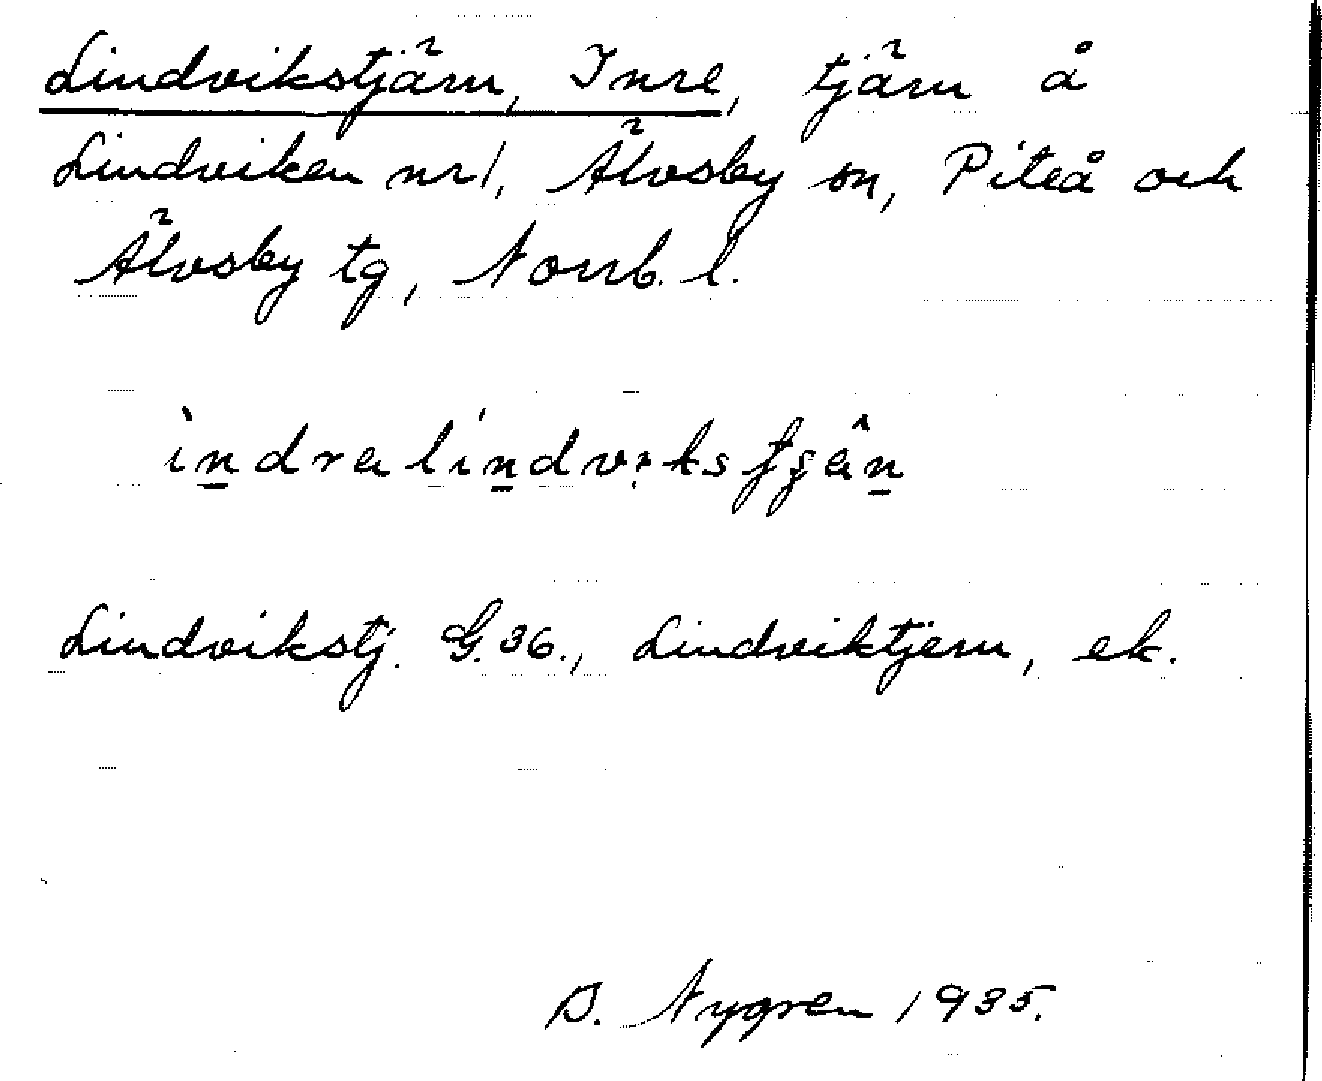 Lindvikstjärn, Inre, tjärn å
Lindviken nr 1, Älvsby sn, Piteå och
Älvsby tg, Norrb. l.
ìndralíndvıksʈʂân
Lindvikstj. G. 36., Lindviktjern, ek.
B. Nygren 1935.